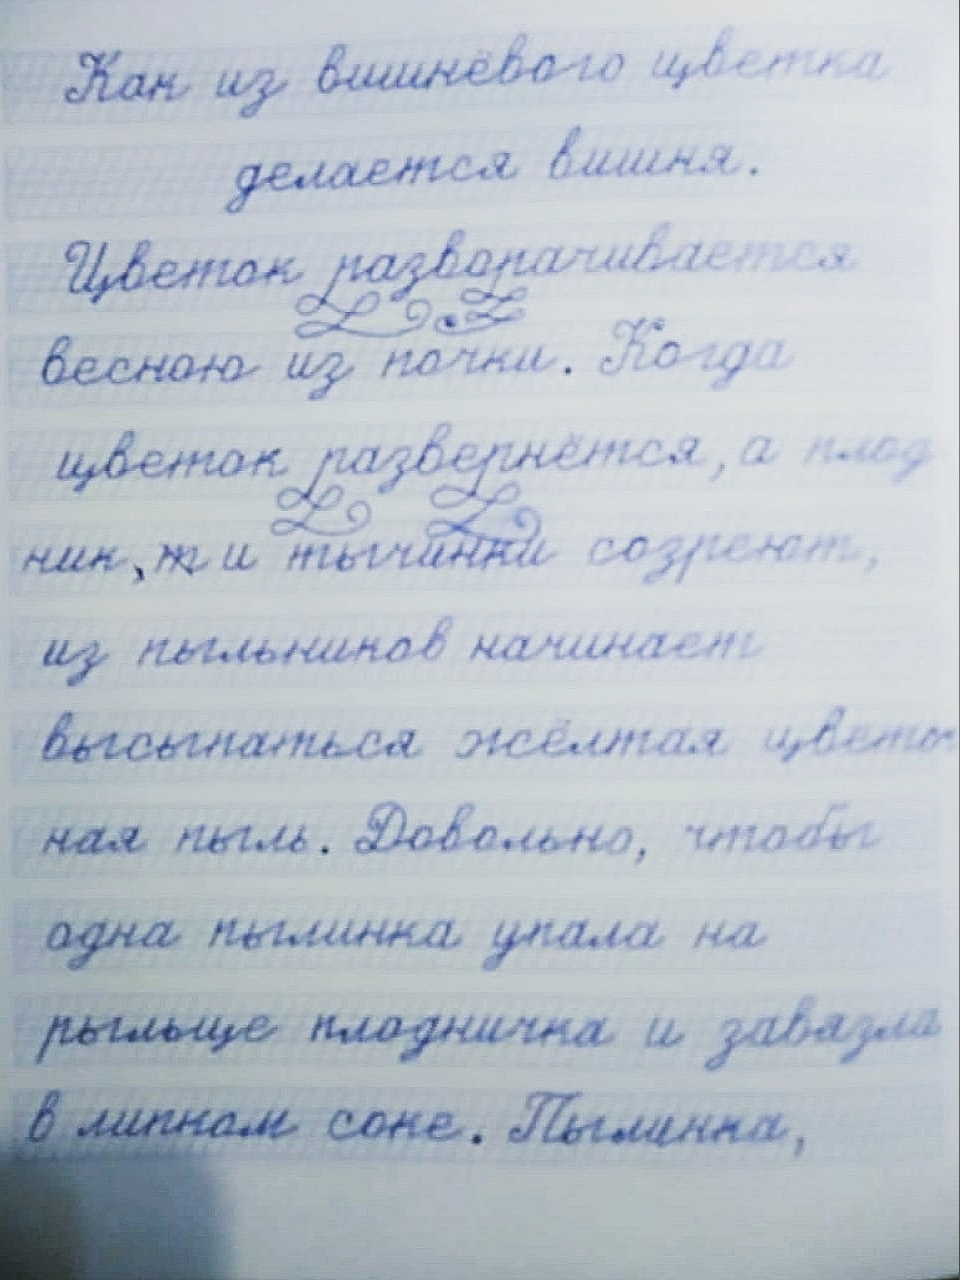 Как из вишнёвого цветка
делается вишня.
Цветок разворачивается
весною из почки. Когда
цветок развернётся, а плод
ник, и тычинки созреют,
из пыльников начинает
высыпаться жёлтая цвето-
ная пыль. Довольно, чтобы
одна пылинка упала на
рыльце плодничка и завязла
в липком соке. Пылинка,